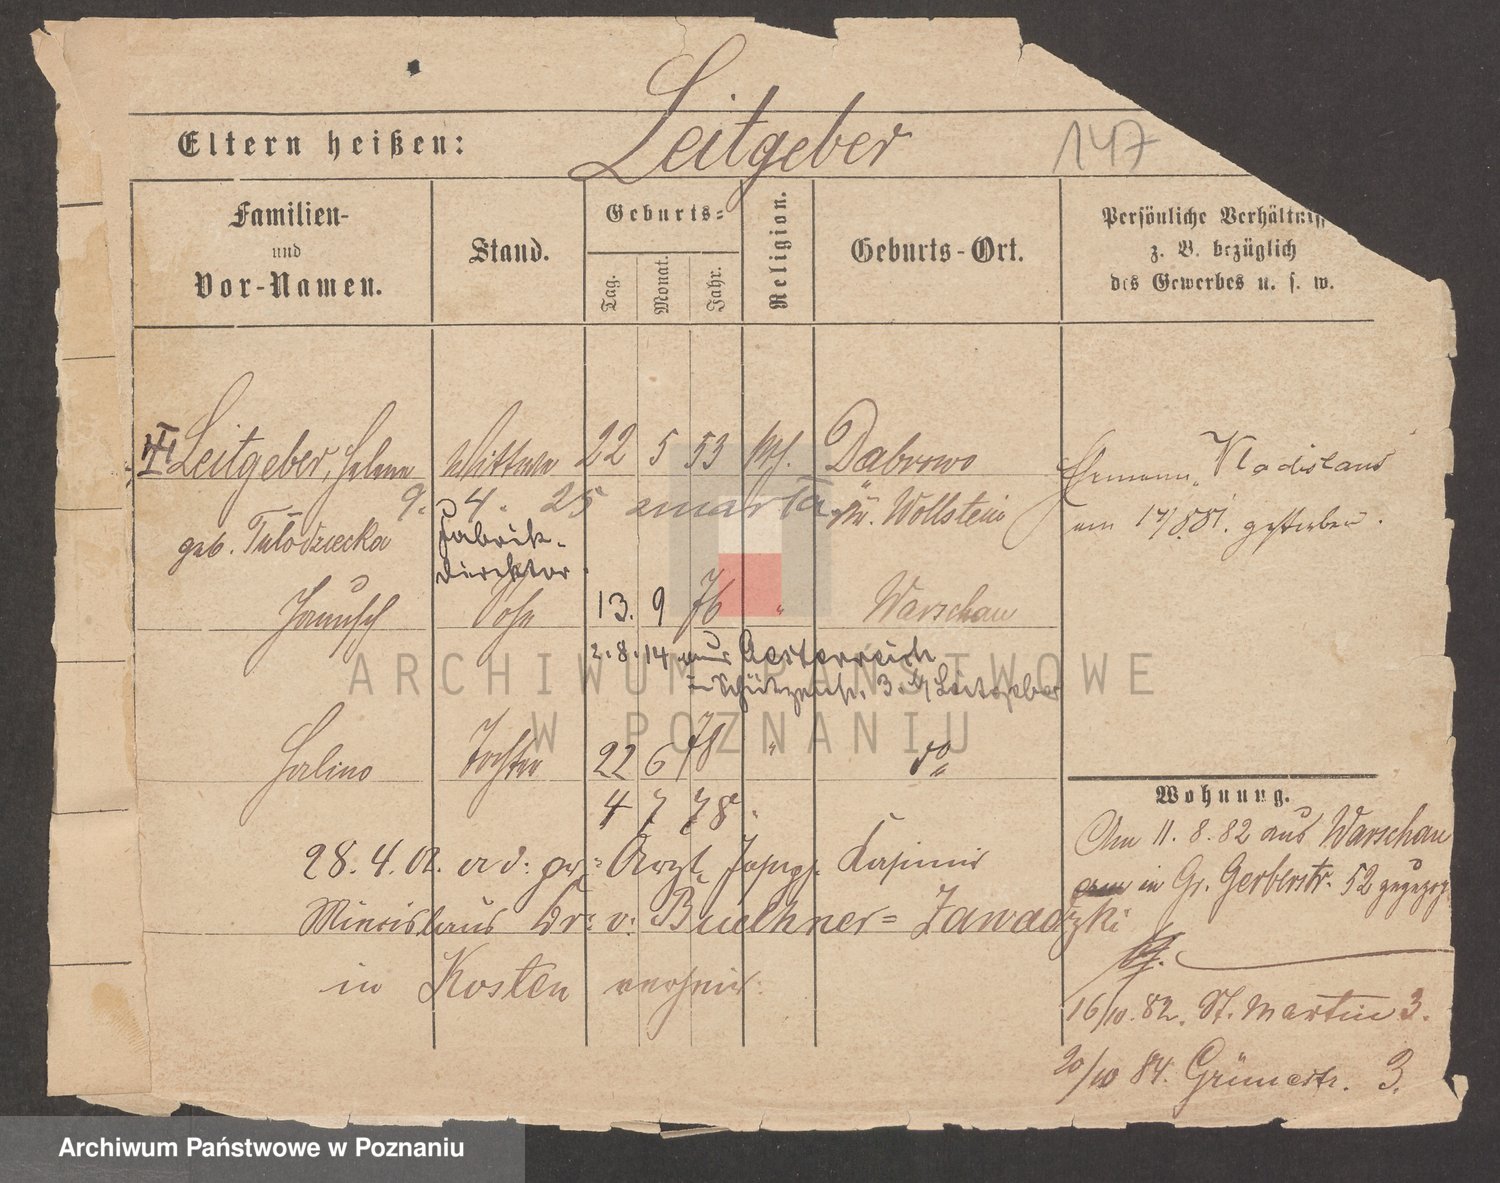 Leitgeber
147
Eltern heißen:
Familien-
und
Vor-Namen.
Stand.
Geburts-
Tag.
Monat.
Jahr.
Religion.
Geburts-Ort.
Persönliche Verhältniss
z. B. bezüglich
des Gewerbes u. s. w.
Leitgeber, Helena Wittwe 22 5 53 kth. Dabrowo
9. 4. 25 zmarła
Kr. Wollstein
geb. Tułodziecka
Ehemann Vladislaus
am 17/8.81. gestorben.
Fabrik-
direktor
Janusch Sohn 13. 9 76 " Warschau
2.8.14 aus Oesterreich
Schützenstr. 3. b/ Leitgeber
Halina Tochter 22 6 78 " do
4 7 78.
28.4.02. a. d. pr: Arzt Joseph Kasimir
Miecislaus Dr: v: Buelhner= Zawadzki
in Kosten verheir:
Wohnung.
Am 11. 8. 82 aus Warschau
in Gr. Gerberstr. 52 gezog
16/10. 82. St. Martin 3.
20/10 84. Grünestr. 3.
ARCHIWUM PAŃSTWOWE
W POZNANIU
Archiwum Państwowe w Poznaniu